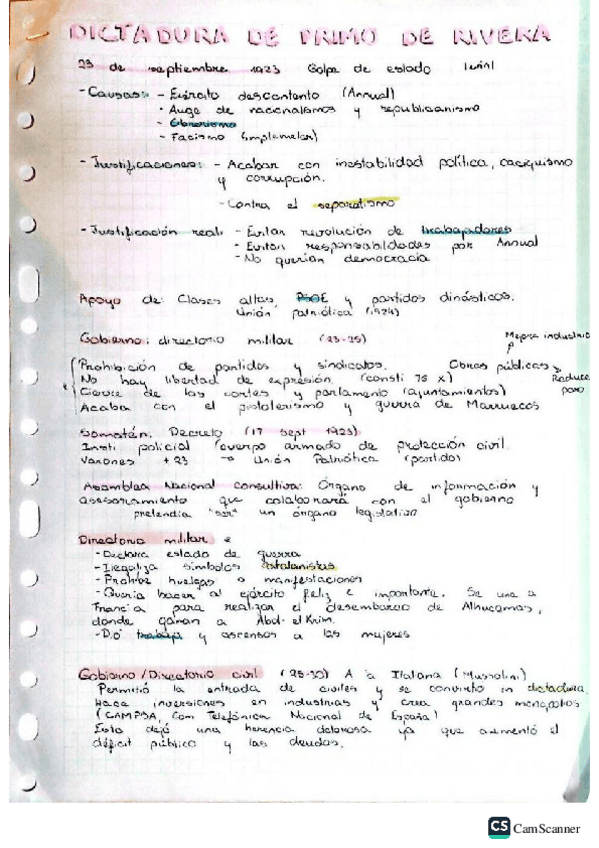 DICTADURA DE PRIMO DE RIVERA
23 de septiembre 1923 Golpe de estado
- Causas: - Ejército descontento (Annual)
- Auge de nacionalismos y republicanismo
- Obrerismo
- Facismo (implementar)
- Justificaciones: - Acabar con inestabilidad política, caciquismo
y corrupción.
- Contra el separatismo
- Justificación real: - Evitar revolución de trabajadores
- Evitar responsabilidades por Annual
- No querían democracia
Apoyo de: Clases altas, PSOE y partidos dinásticos.
Unión patriótica (1924)
Gobierno: directorio militar (23-25)
Mejora industria
Prohibición de partidos y sindicatos. Obras públicas
No hay libertad de expresión (consti 76 x) Reduce
Cierre de las cortes y parlamento (ayuntamientos) paro
Acaba con el pistolerismo y guerra de Marruecos
Somatén: Decreto (17 sept 1923)
Insti policial (cuerpo armado de protección civil.
Varones +23 → Unión Patriótica (partido)
Asamblea Nacional consultiva: Órgano de información y
asesoramiento que colaborará con el gobierno
pretendía "ser" un órgano legislativo
Directorio militar:
- Declara estado de guerra
- Ilegaliza símbolos catalanistas
- Prohibe huelgas o manifestaciones
- Quería hacer al ejército feliz e importante. Se une a
Francia para realizar el desembarco de Alhucemas,
donde ganan a Abd-el Krim.
- Dió trabajo y ascensos a los mujeres
Gobierno/Directorio civil (25-30) A la Italiana (Mussolini)
Permitió la entrada de civiles y se convirtió in dictadura.
Hace inversiones en industrias y crea grandes monopolios
(CAMPSA, Com Telefónica Nacional de España)
Esto dejó una herencia dolorosa ya que aumentó el
déficit público y las deudas.
CS CamScanner